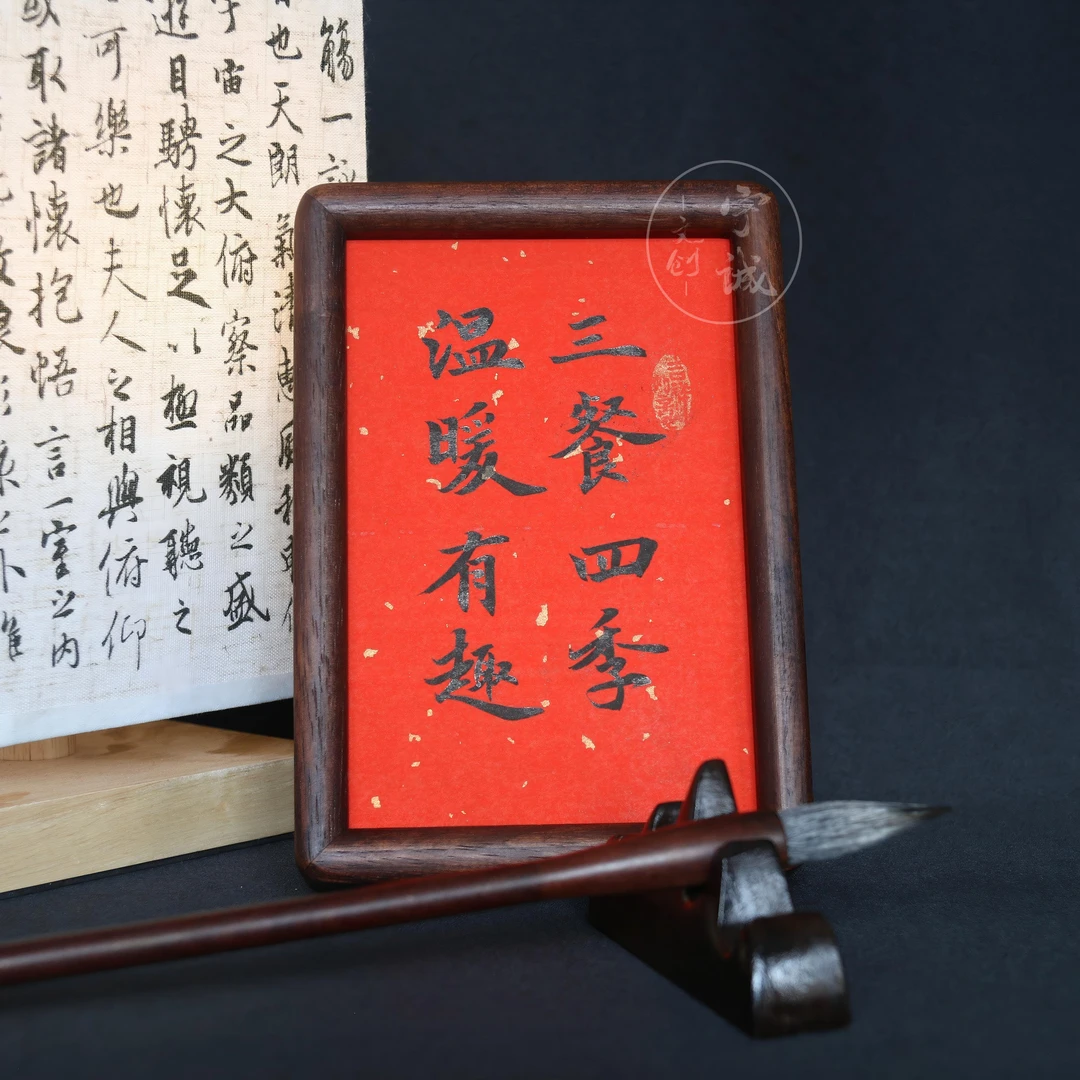 三餐四季
温暖有趣
宁诚
文创
觞一詠
也天朗氣清惠風和
宇宙之大俯察品類之盛
遊目騁懷足以極視聽之
可樂也夫人之相與俯仰
或取諸懷抱悟言一室之内